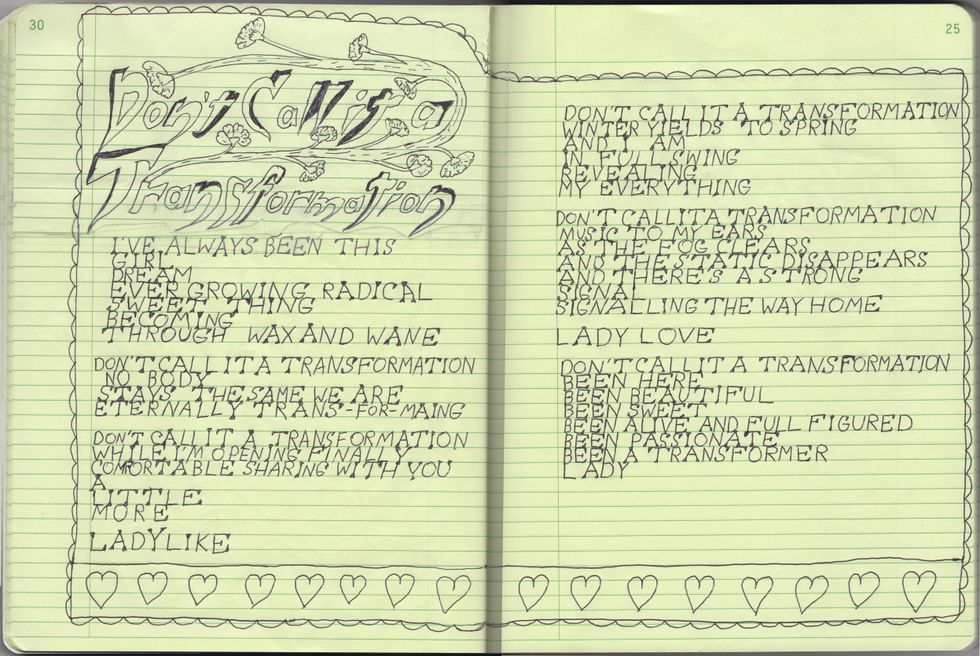 30
Don't Call it a
Transformation
I'VE ALWAYS BEEN THIS
GIRL
DREAM
EVER GROWING RADICAL
SWEET THING
BECOMING
THROUGH WAX AND WANE
DON'T CALL IT A TRANSFORMATION
NO BODY
STAYS THE SAME WE ARE
ETERNALLY TRANS-FOR-MAING
DON'T CALL IT A TRANSFORMATION
WHILE I'M OPENING FINALLY
COMFORTABLE SHARING WITH YOU
A
LITTLE
MORE
LADYLIKE
25
DON'T CALL IT A TRANSFORMATION
WINTER YIELDS TO SPRING
AND I AM
IN FULL SWING
REVEALING
MY EVERYTHING
DON'T CALL IT A TRANSFORMATION
MUSIC TO MY EARS
AS THE FOG CLEARS
AND THE STATIC DISAPPEARS
AND THERE'S A STRONG
SIGNAL
SIGNALLING THE WAY HOME
LADY LOVE
DON'T CALL IT A TRANSFORMATION
BEEN HERE
BEEN BEAUTIFUL
BEEN SWEET
BEEN ALIVE AND FULL FIGURED
BEEN PASSIONATE
BEEN A TRANSFORMER
LADY